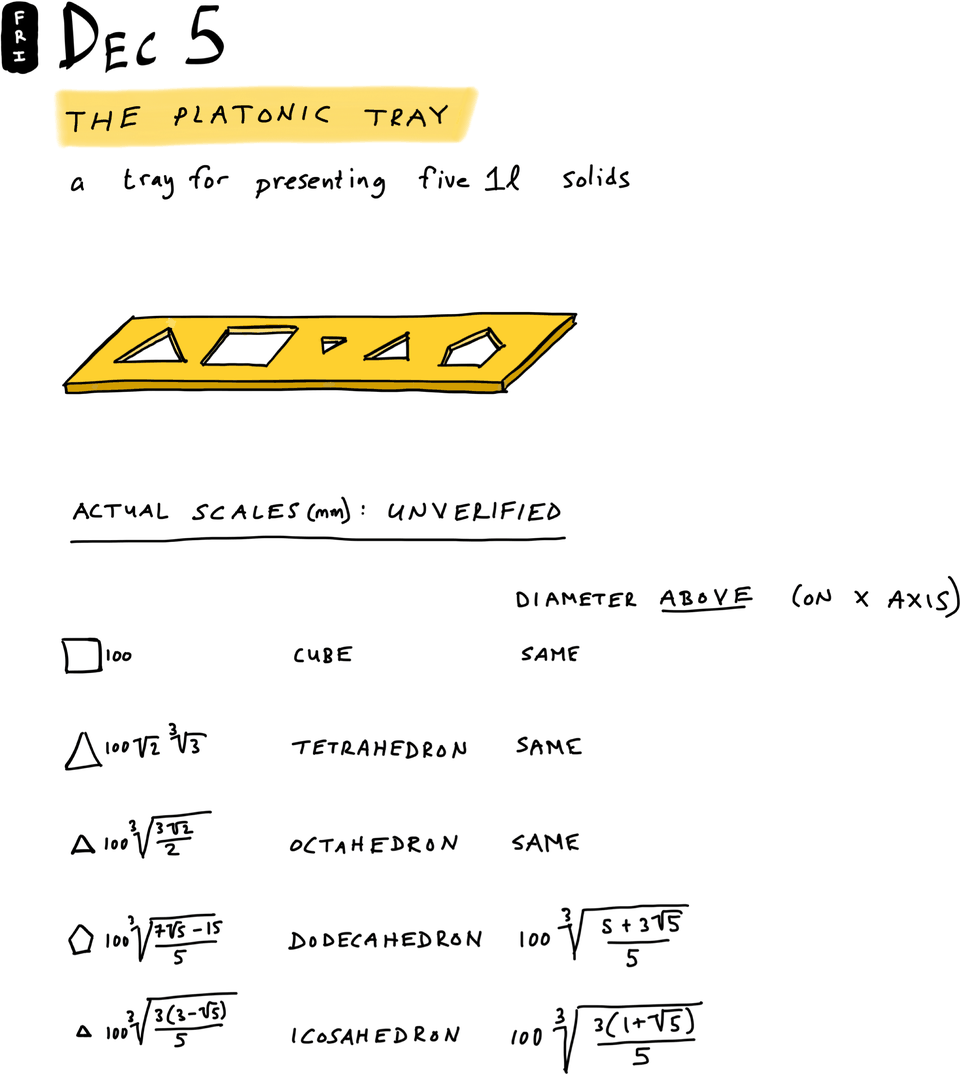 FRI DEC 5
THE PLATONIC TRAY
a tray for presenting five 1l solids
ACTUAL SCALES (mm): UNVERIFIED
DIAMETER ABOVE (ON X AXIS)
100 CUBE SAME
100√2 ∛3 TETRAHEDRON SAME
100 ∛(3√2/2) OCTAHEDRON SAME
100 ∛((7√5-15)/5) DODECAHEDRON 100 ∛((5+3√5)/5)
100 ∛(3(3-√5)/5) ICOSAHEDRON 100 ∛(3(1+√5)/5)